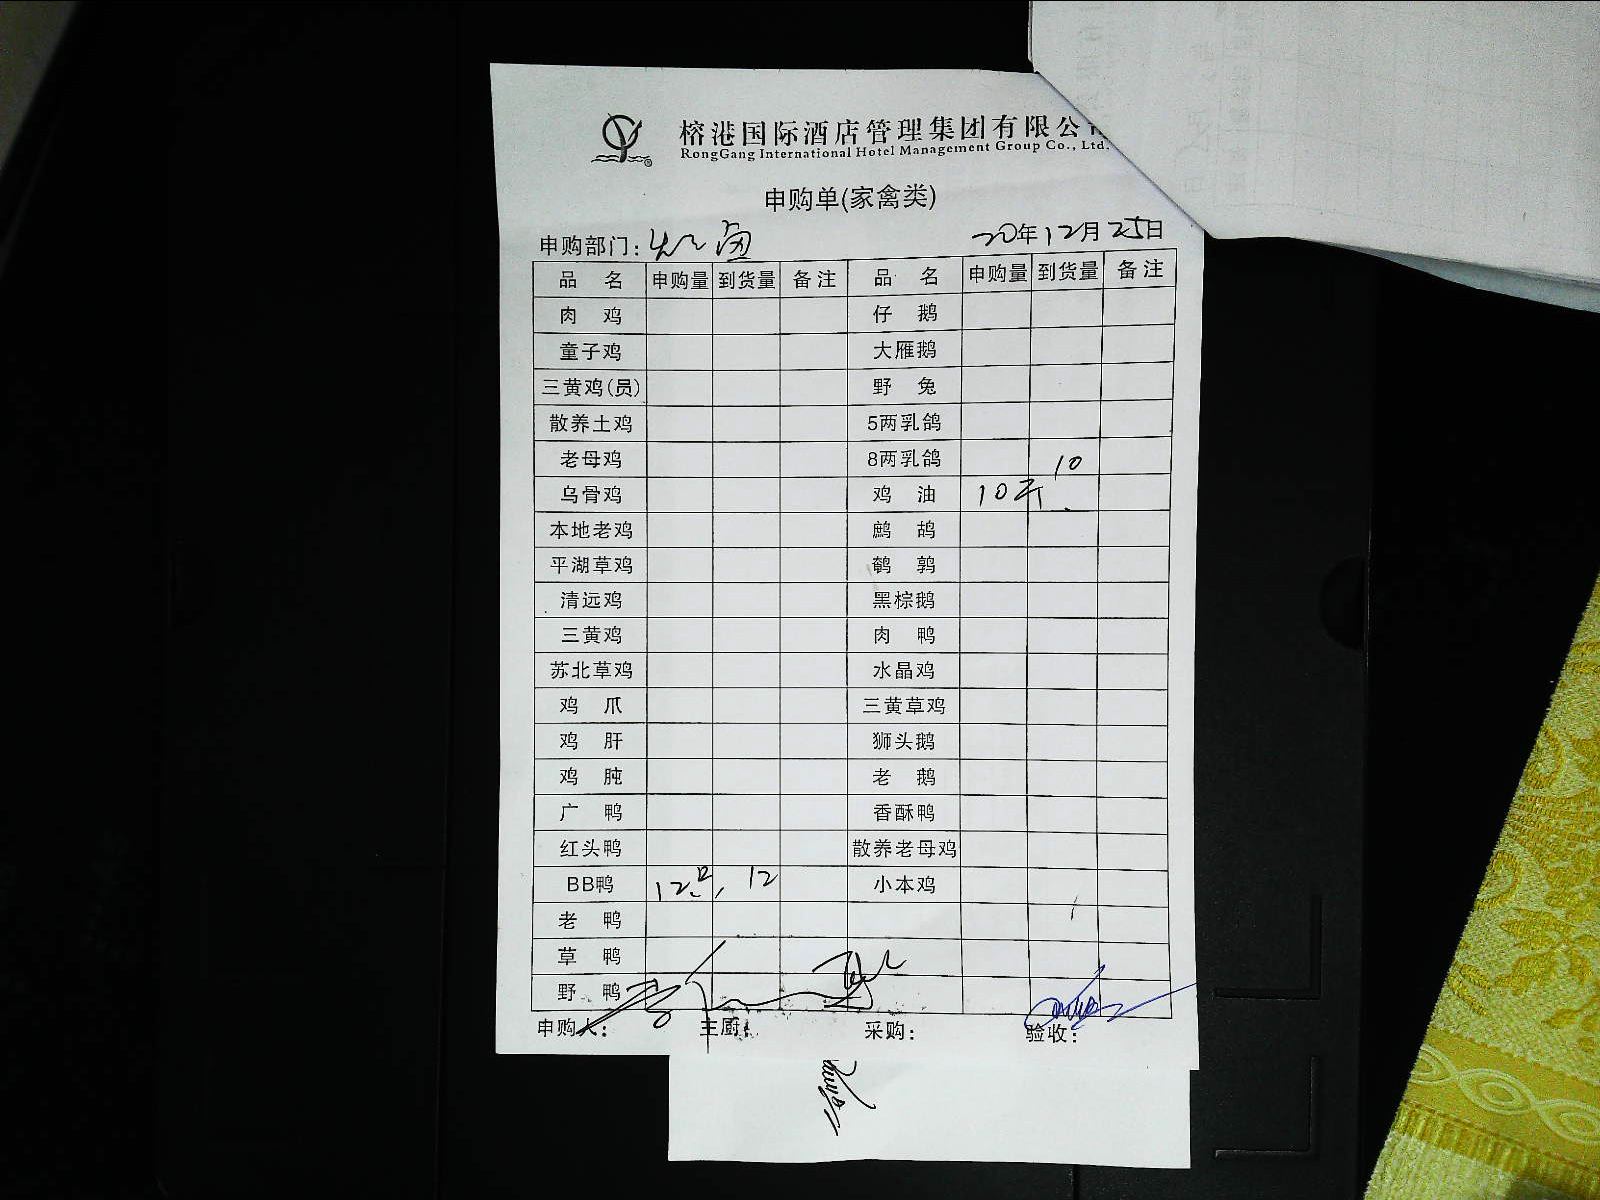 榕港国际酒店管理集团有限公
RongGang International Hotel Management Group Co., Ltd.
申购单(家禽类)
申购部门: 20年12月25日
品名 申购量 到货量 备注 品名 申购量 到货量 备注
肉鸡 仔鹅
童子鸡 大雁鹅
三黄鸡(员) 野兔
散养土鸡 5两乳鸽
老母鸡 8两乳鸽 10
乌骨鸡 鸡油 10斤
本地老鸡 鹧鸪
平湖草鸡 鹌鹑
清远鸡 黑棕鹅
三黄鸡 肉鸭
苏北草鸡 水晶鸡
鸡爪 三黄草鸡
鸡肝 狮头鹅
鸡肫 老鹅
广鸭 香酥鸭
红头鸭 散养老母鸡
BB鸭 12只 12 小本鸡
老鸭
草鸭
野鸭
申购人: 主厨: 采购: 验收: